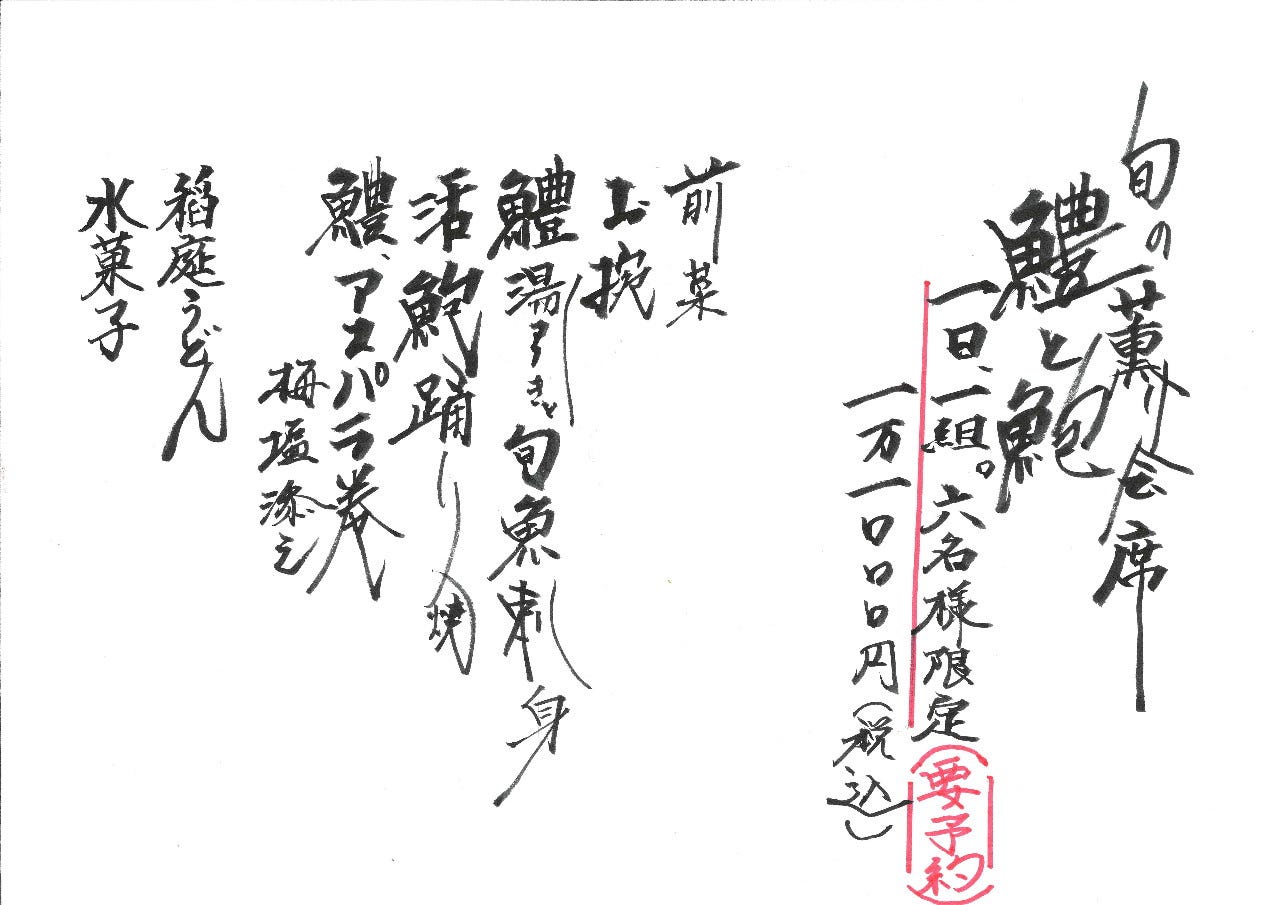 旬の薫り会席
鱧と鮑
一日、一組。六名様限定(要予約)
一万一〇〇〇円(税込)
前菜
お椀
鱧湯引きと旬魚刺身
活鮑踊り焼
鱧、アスパラ巻
梅塩添え
稲庭うどん
水菓子